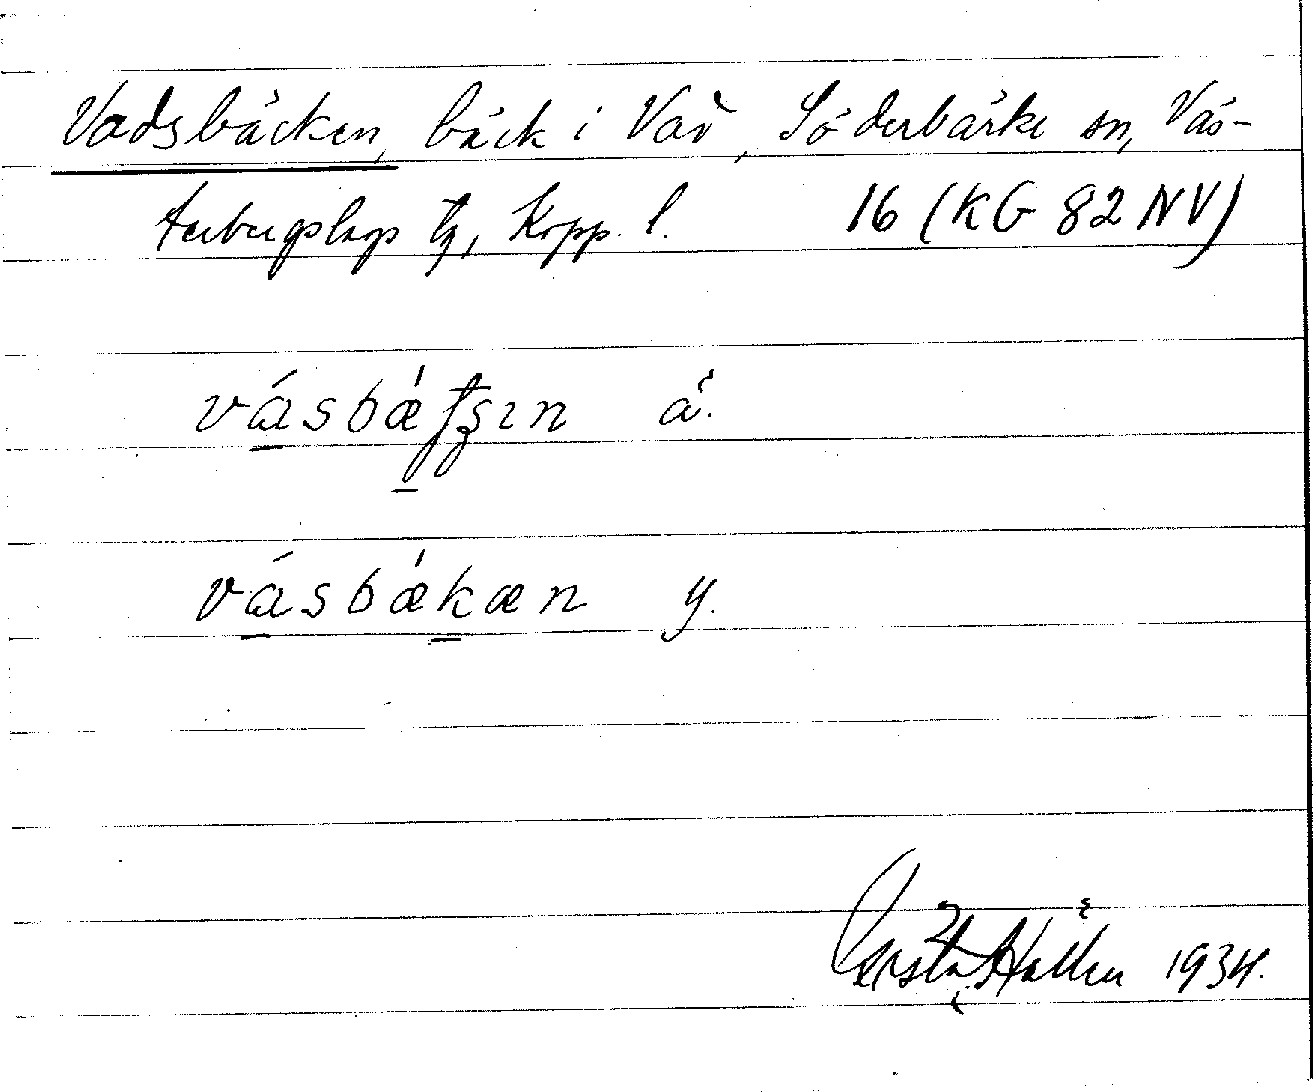 Vadsbäcken, bäck i Vad, Söderbärke sn, Väs-
terbergslags tg, Kopp. l. 16 (KG 82 NV)
vásbǽʈʂın ä.
vásbǽkæn y.
Gösta Hallén 1934.